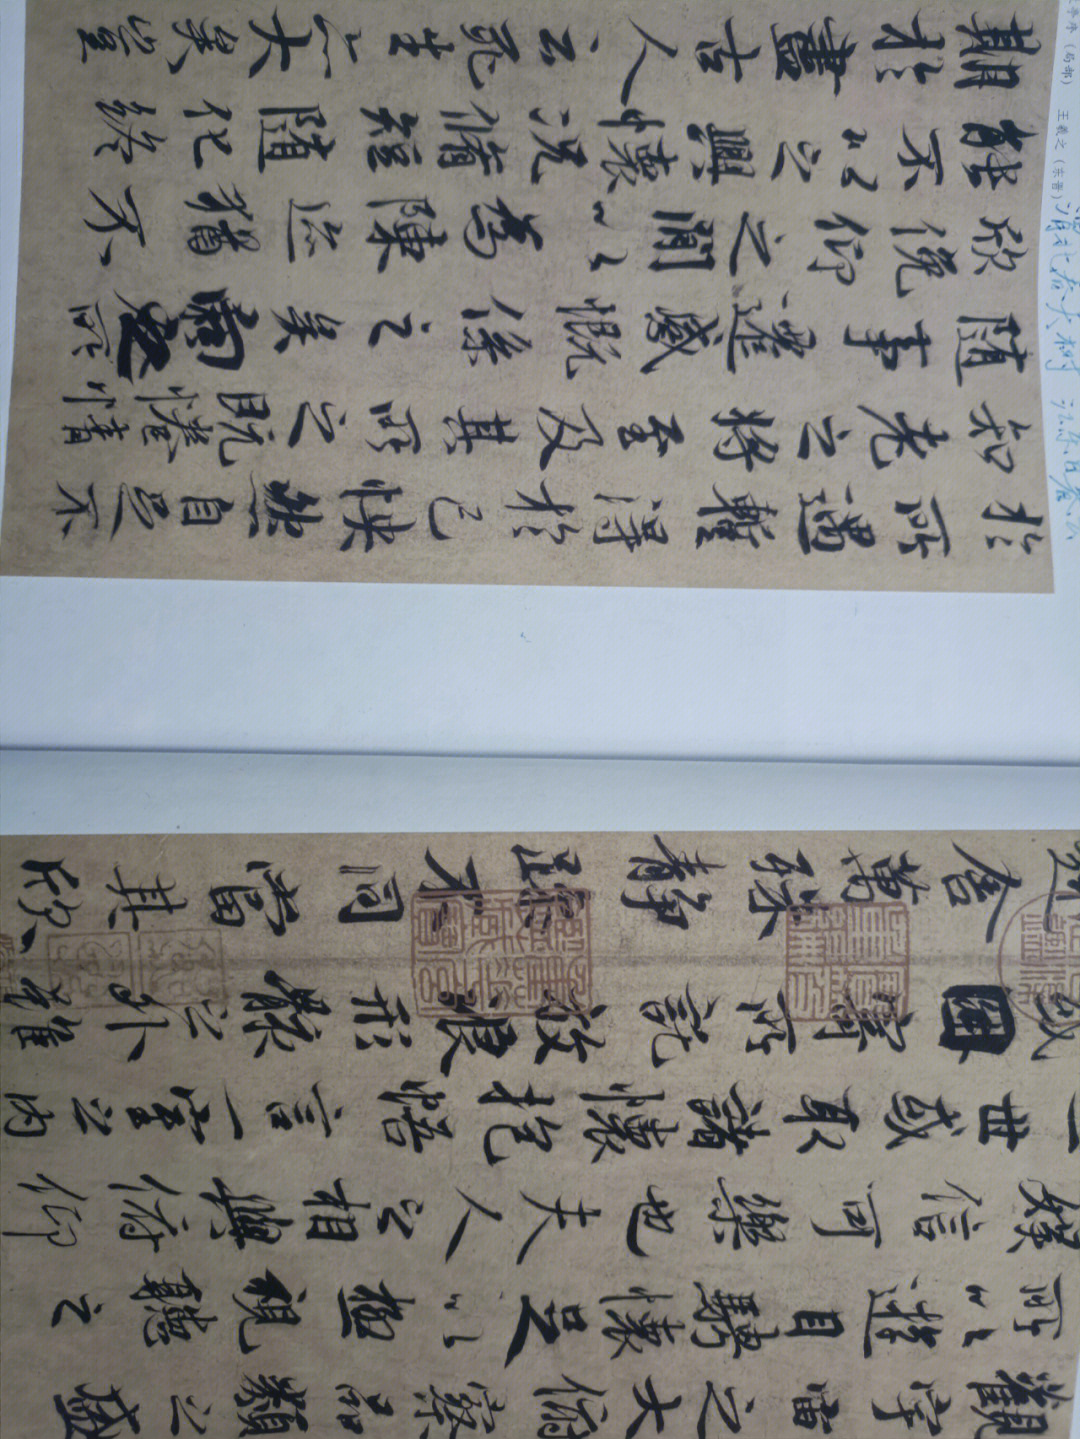 觀宇宙之大俯察品類之盛
所以遊目騁懷足以極視聽之
娛信可樂也夫人之相與俯仰
一世或取諸懷抱悟言一室之內
或因寄所託放浪形骸之外雖
趣舍萬殊靜躁不同當其欣
於所遇蹔得於己快然自足不
知老之將至及其所之既惓情
隨事遷感慨係之矣向之所
欣俛仰之閒以為陳迹猶不
能不以之興懷況脩短隨化終
期於盡古人云死生亦大矣豈
亭序（局部） 王羲之（东晋）